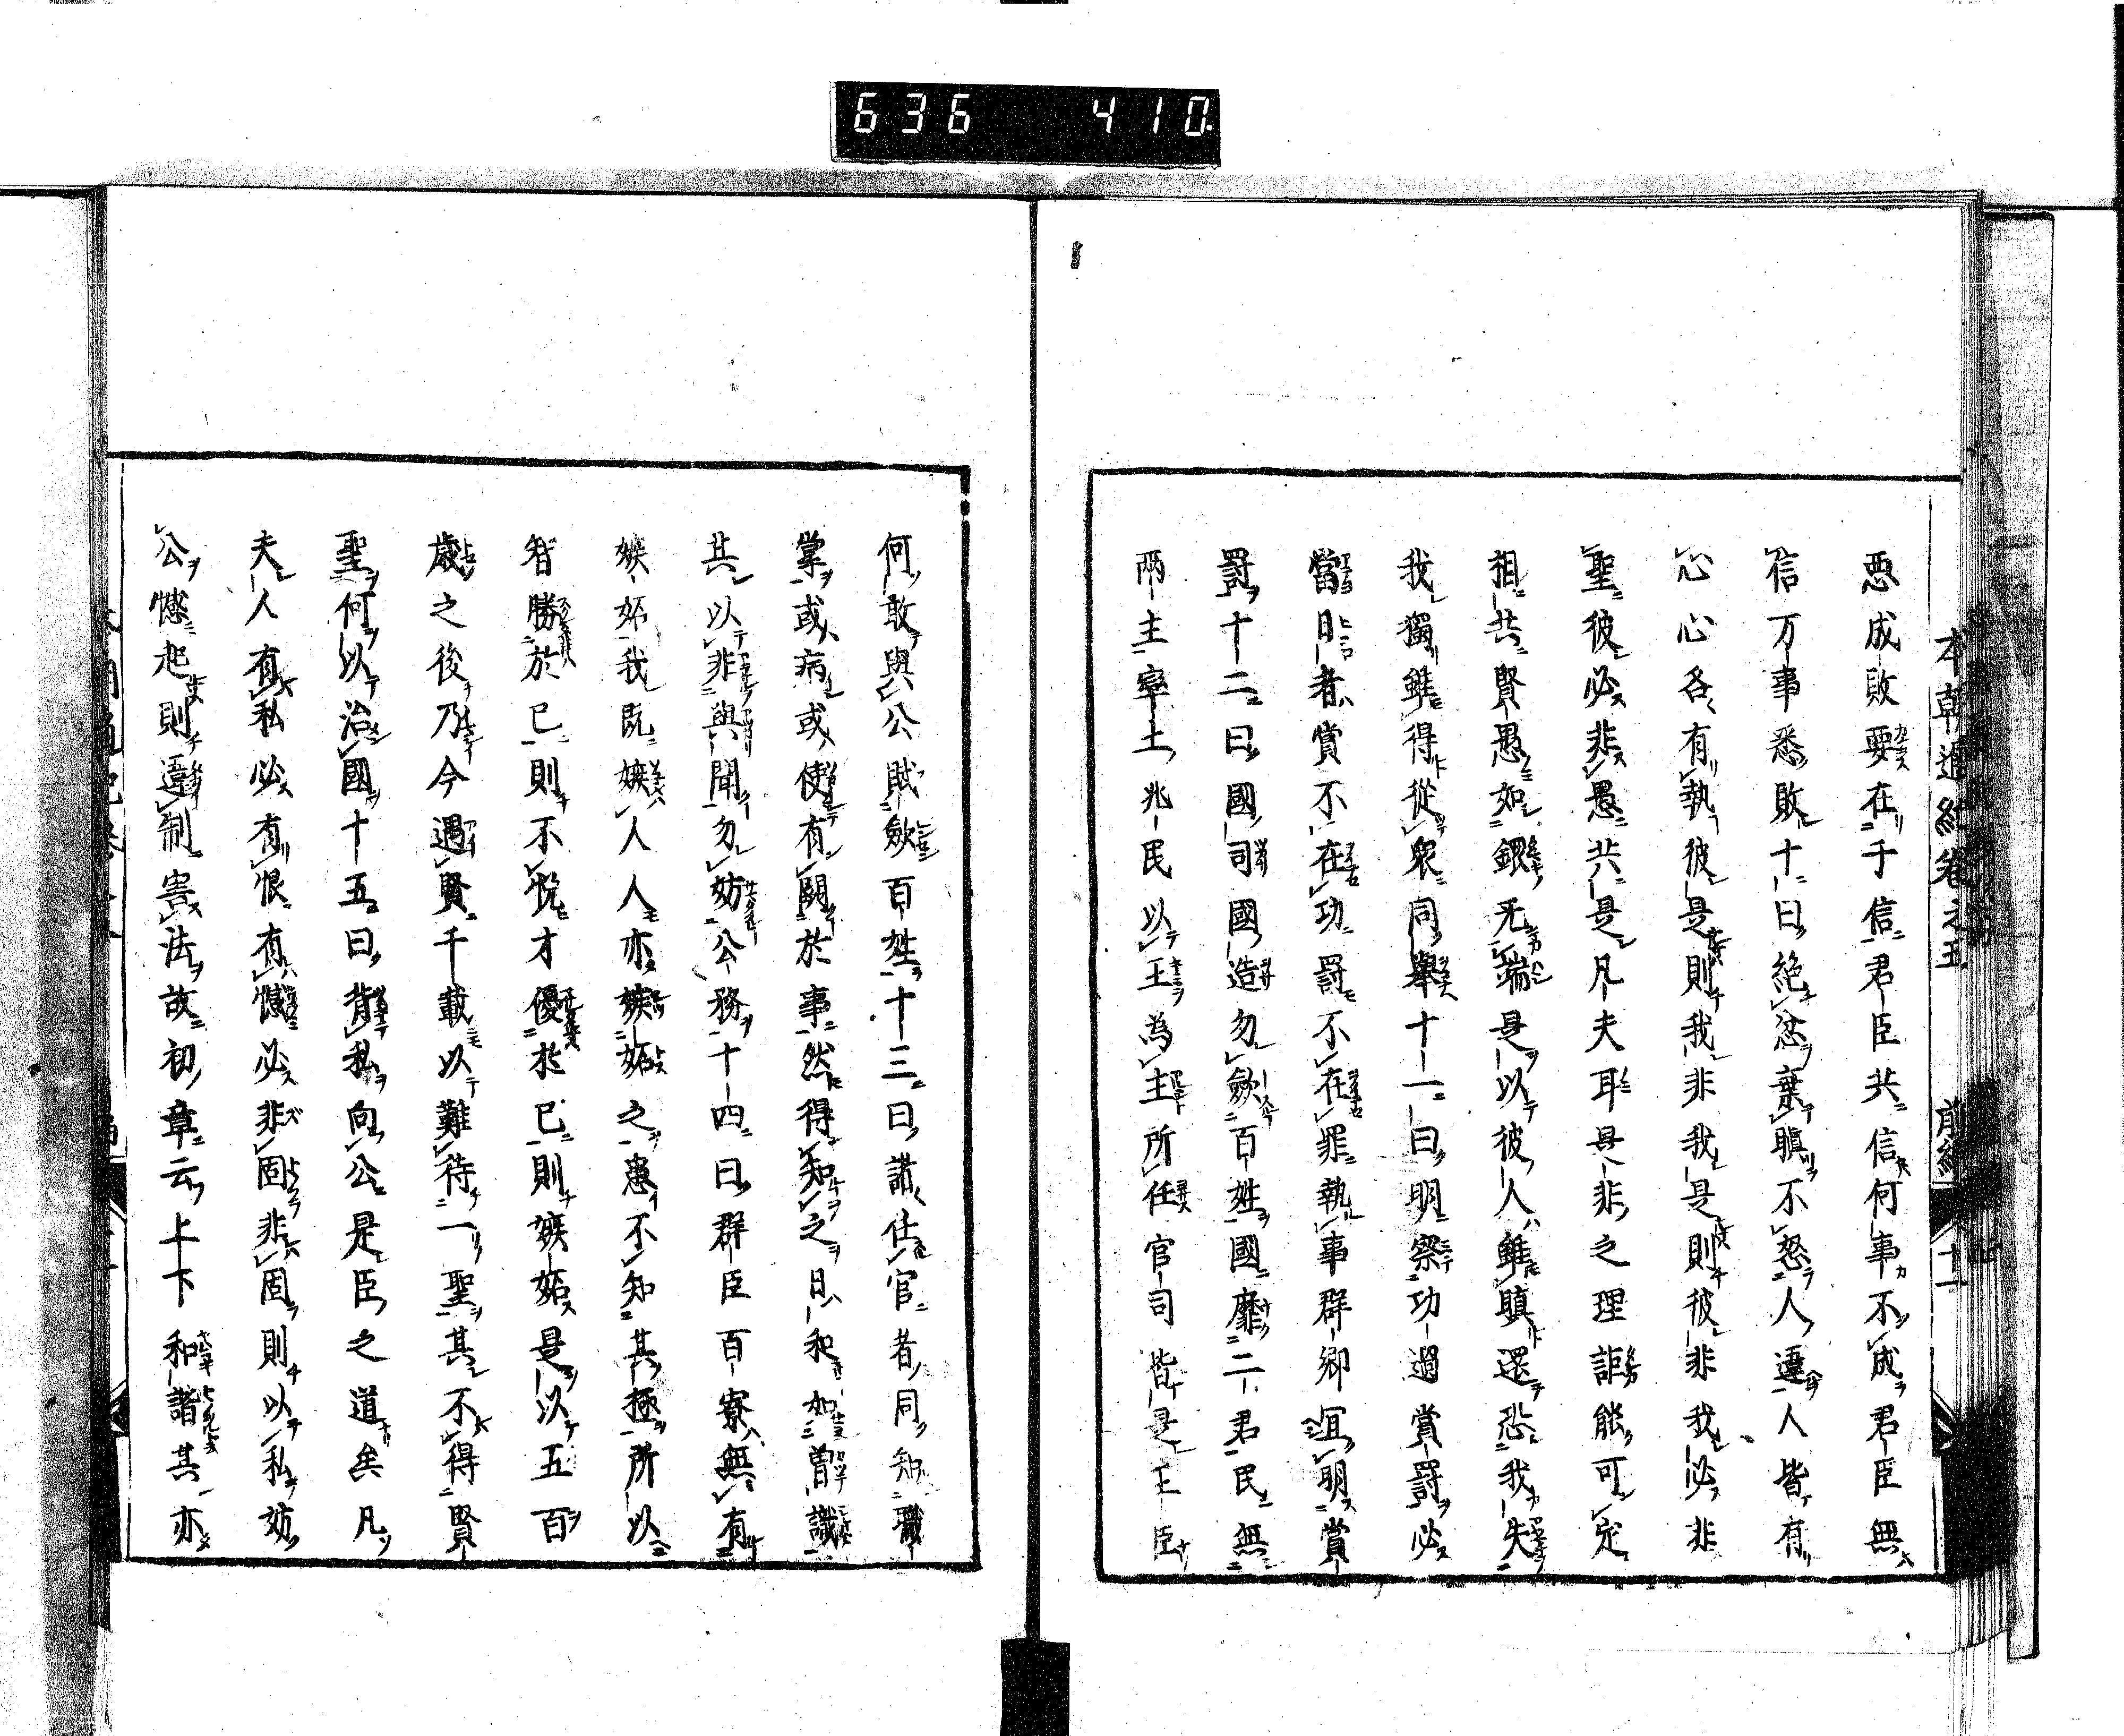 636 410
本朝通紀卷之五 前編 十一
惡成敗要在于信君臣共信何事不成君臣無
信万事悉敗十曰絶忿棄瞋不怒人違人皆有
心心各有執彼是則我非我是則彼非我必非
聖彼必非愚共是凡夫耳是非之理詎能可定
相共賢愚如鐶无端是以彼人雖瞋還恐我失
我獨雖得從衆同舉十一曰明察功過賞罰必
當日者賞不在功罰不在罪執事群卿宜明賞
罰十二曰國司國造勿斂百姓國靡二君民無
兩主率土兆民以王為主所任官司皆是王臣
何敢與公賦斂百姓十三曰諸仕官者同知職
掌或病或使有闕於事然得知之日和如曽識
其以非與聞勿妨公務十四曰群臣百寮無有
嫉妬我既嫉人人亦嫉妬之患不知其極所以
智勝於已則不悅才優於已則嫉妬是以五百
歳之後乃今遇賢千載以難待一聖其不得賢
聖何以治國十五曰背私向公是臣之道矣凡
夫人有私必有恨有憾必非固非固則以私妨
公憾起則違制害法故初章云上下和諧其亦